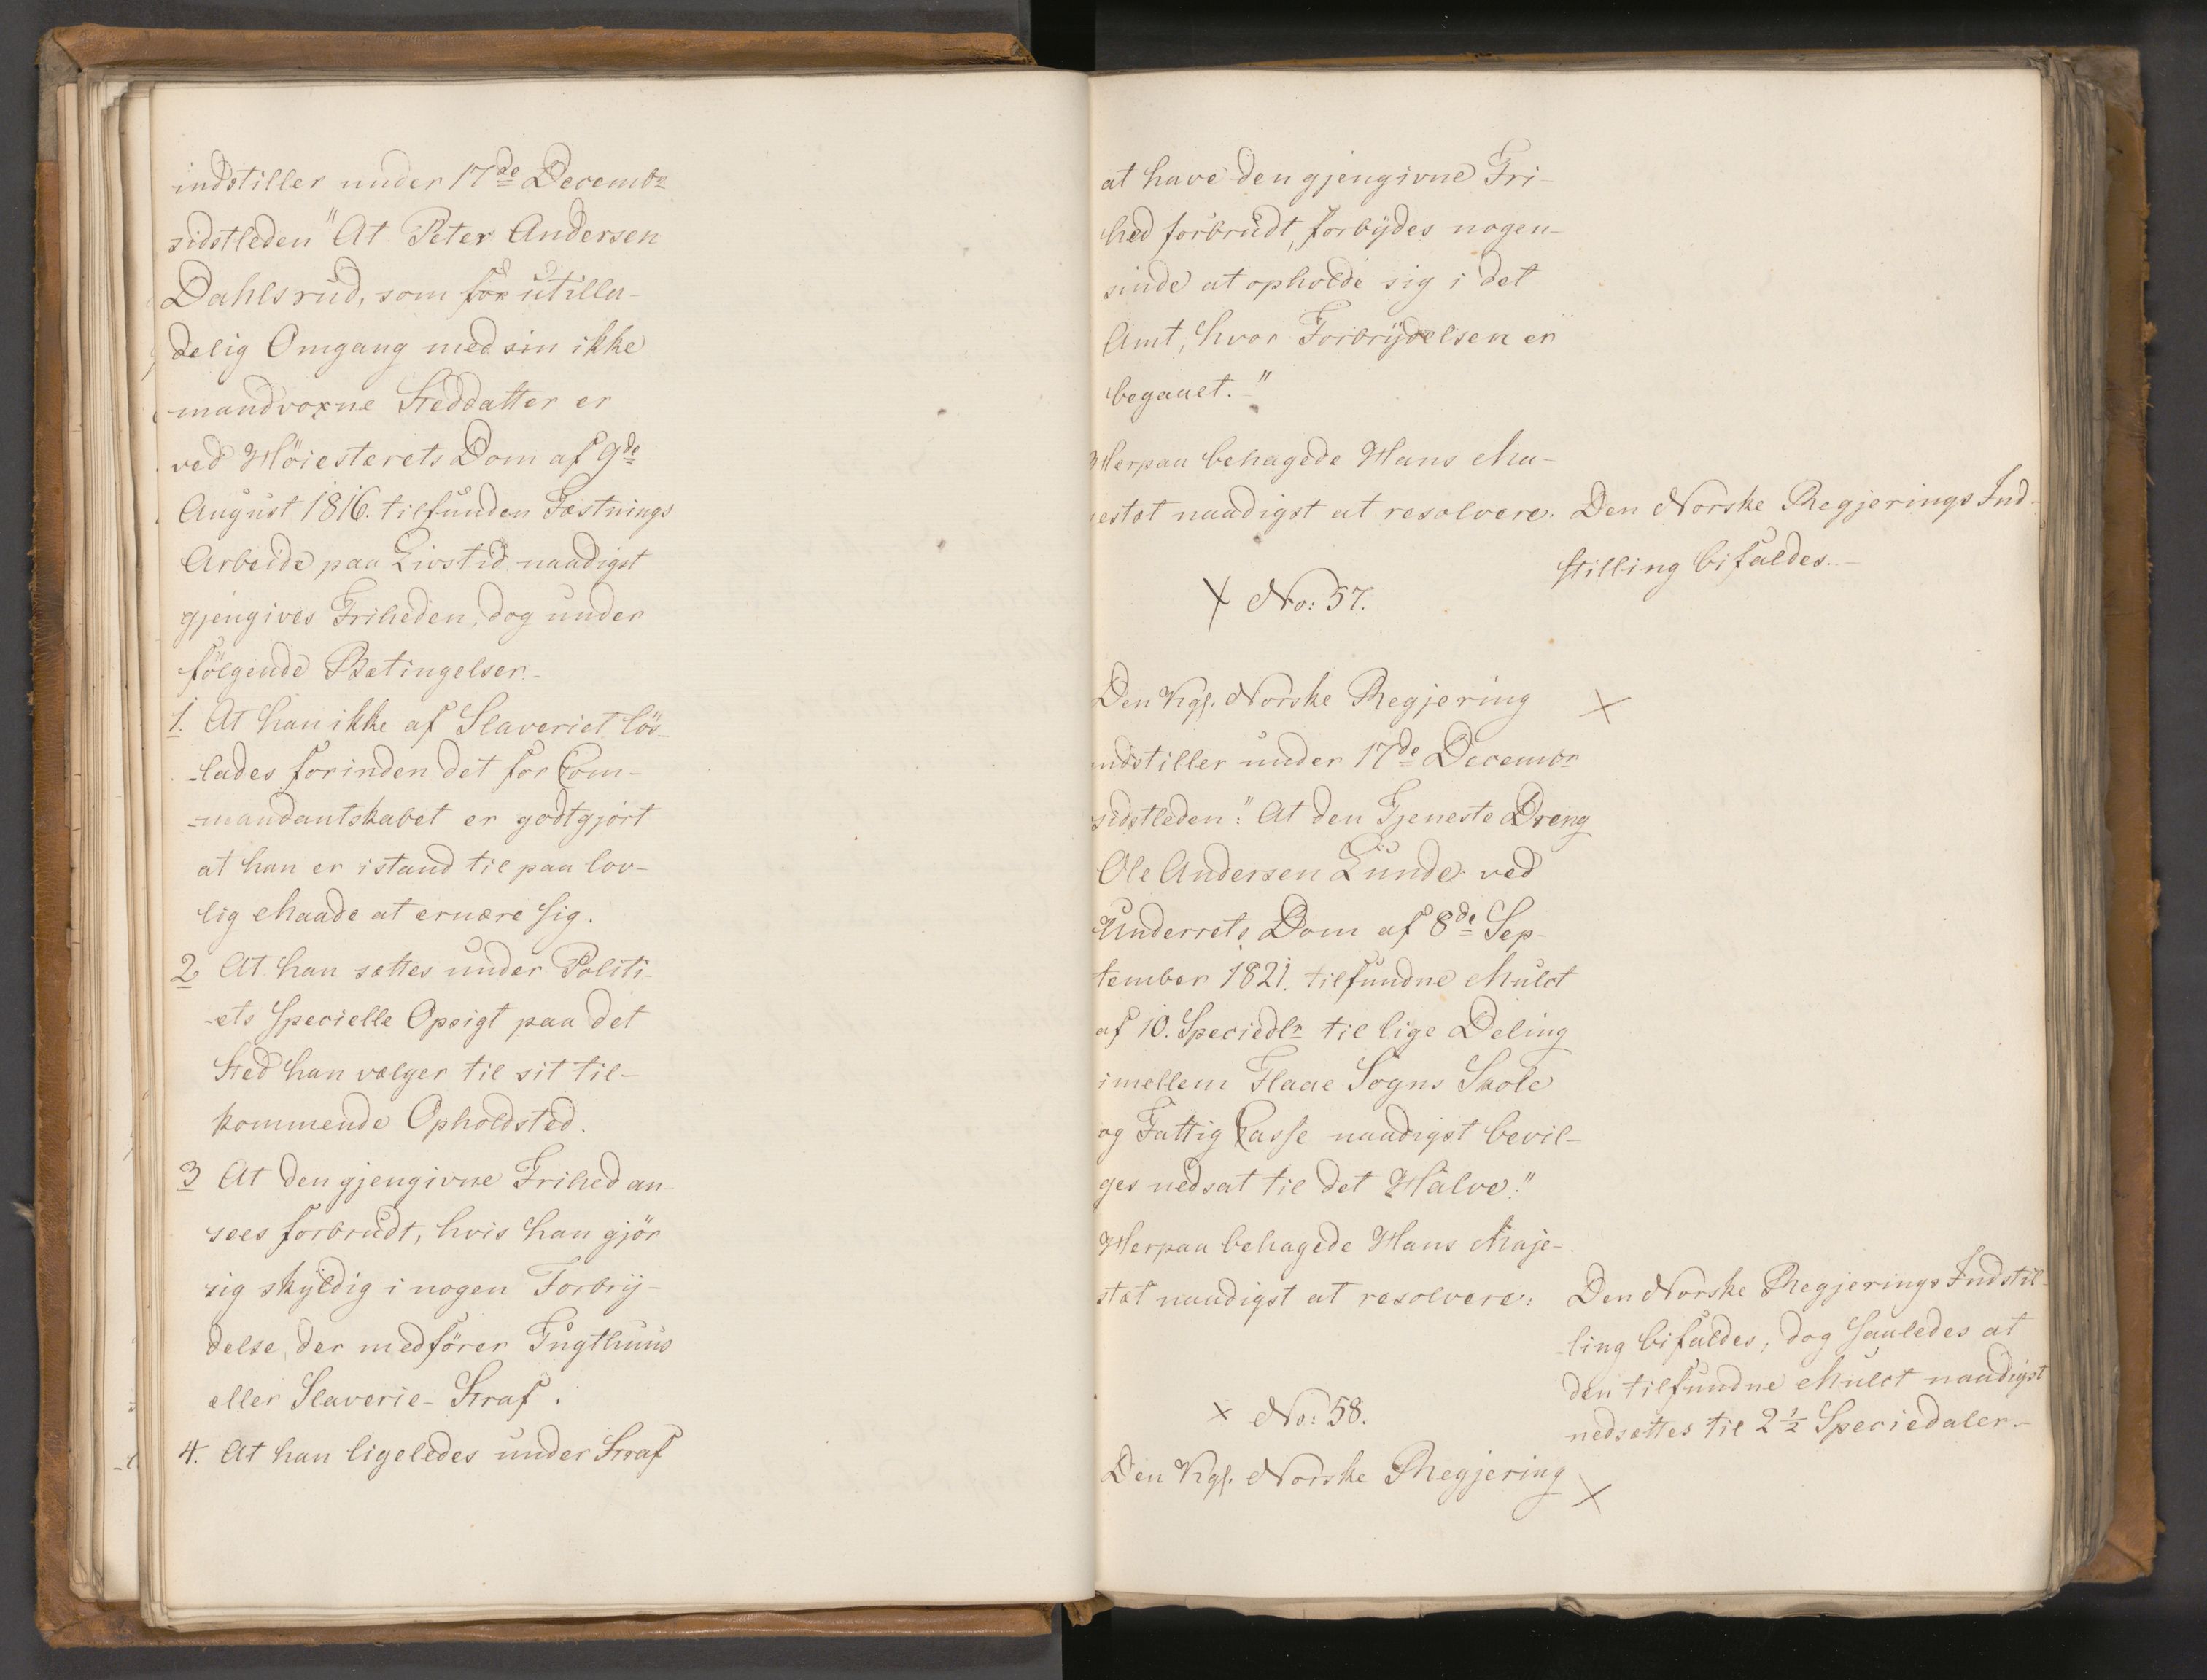 indstiller under 17de Decembr
sidstleden "At Peter Andersen
Dahlsrud, som for utilla-
delig Omgang med sin ikke
mandvoxne Steddatter er
ved Höiesterets Dom af 9de
August 1816. tilfunden Fæstnings
Arbeide paa Livstid naadigst
gjengives Friheden, dog under
følgende Betingelser.-
1. At han ikke af Slaveriet lös-
-lades forinden det for Com-
-mandantskabet er godtgjört
at han er istand til paa lov-
lig Maade at ernære sig.
2 At han sættes under Politi-
-ets specielle Opsigt paa det
Sted han vælger til sit til-
kommende Opholdsted.
3 At den gjengivne Frihed an-
sees forbrudt, hvis han gjör
sig skyldig i nogen Forbry-
delse, der medförer Tugthuus
eller Slaverie-Straf.
4. At han ligeledes under Straf
at have den gjengivne Fri-
hed forbrudt, forbydes nogen-
sinde at opholde sig i det
Amt, hvor Forbrydelsen er
begaaet."
Herpaa behagede Hans Ma-
jestæt naadigst at resolvere. Den Norske Regjerings Ind-
stilling bifaldes.-
X No: 57.
Den Kgl. Norske Regjering X
indstiller under 17de Decembr
sidstleden: "At den Tjeneste Dreng
Ole Andersen Lunde ved
Underrets Dom af 8de Sep-
tember 1821. tilfundne Mulct
af 10. Speciedlr til lige Deling
imellem Flaae Sogns Skole
og Fattig Casse naadigst bevil-
ges nedsat til det Halve."
Herpaa behagede Hans Maje-
stæt naadigst at resolvere: Den Norske Regjerings Indstil-
-ling bifaldes, dog saaledes at
den tilfundne Mulct naadigst
nedsættes til 2 1/2 Speciedaler.-
X No: 58.
Den Kgl. Norske Regjering X